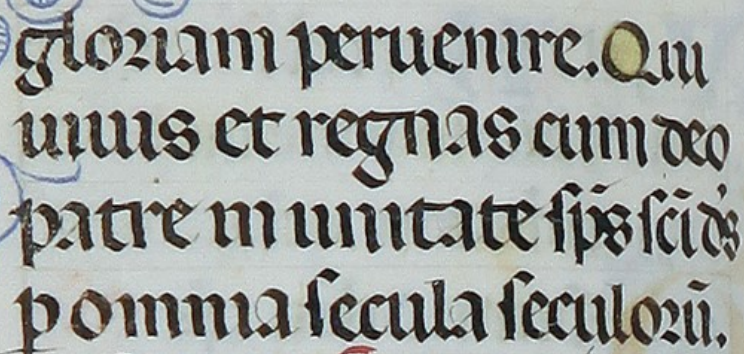 gloriam peruenire. Qui
uiuis et regnas cum deo
patre in unitate sp̄s sc̄i d's
p omnia secula seculorū.